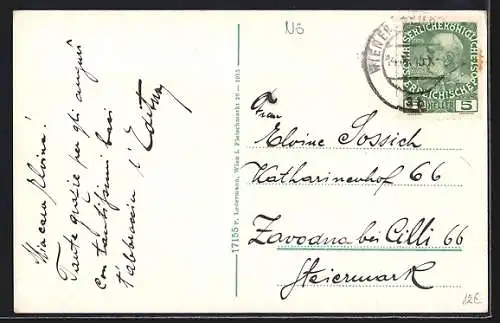 Nö
Mia cara Elvina!
Tante grazie per gli auguri
con tantissimi baci
t'abbraccia
17155 P. Ledermann, Wien I. Fleischmarkt 20 — 1913
WIENER
KAISERLICHE KÖNIGLICHE
ÖSTERREICHISCHE POST
5 HELLER 5
Frau
Elvine Sossich
Katharinenhof 66
Zavodna bei Cilli 66
Steiermark
12€